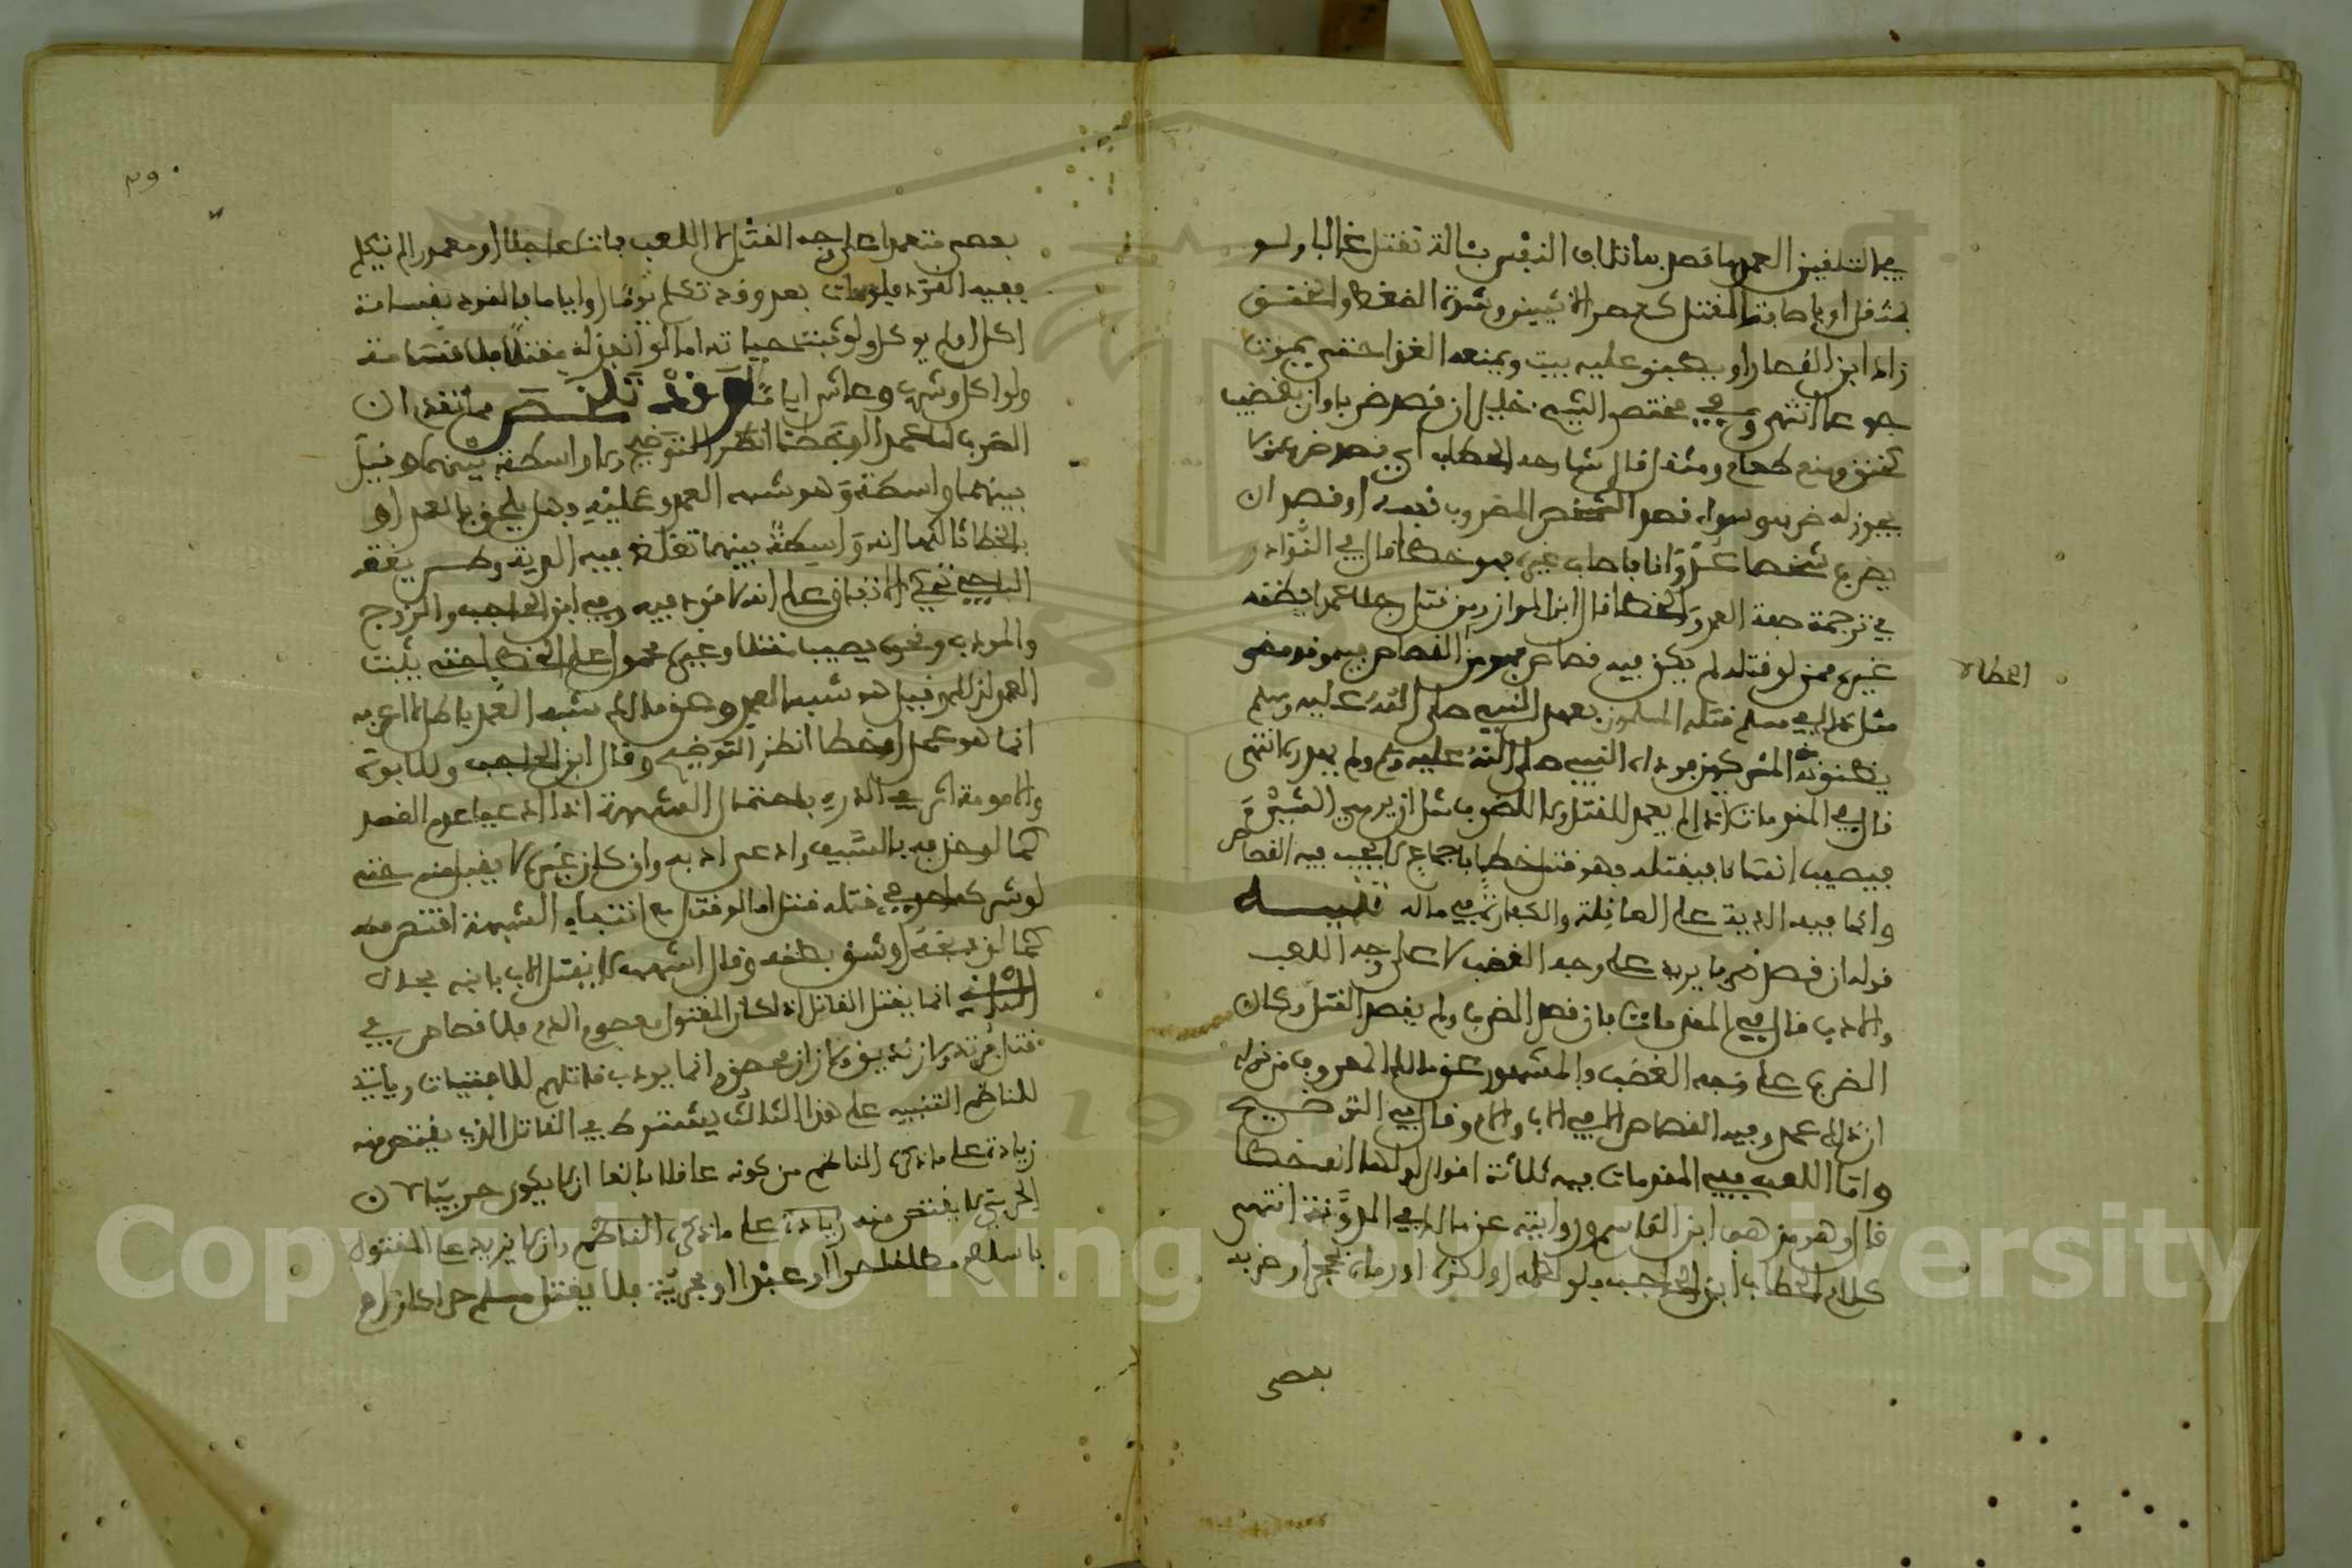 في التلقين العمد ما قصد به اتلاف النفس بئالة تقتل غالبا ولو
بمثقل او باصابة المقتل كعصر الانثيين وشدة الضغط والخنق
زاد ابن القصار او يطبق عليه بيت ويمنعه الغذا حتى يموت
جوعا انتهى وفي مختصر الشيخ خليل ان قصد ضربا وان بقضيب
كخنق ومنع طعام ومثقل قال شارحه الحطاب اي قصد ضرب من لا
يجوز له ضربه وسواء قصد الشخص المضروب نفسه او قصد ان
يضرب شخصا عدوانا فاصاب غيره فهو خطا قال في النوادر
في ترجمة صفة العمد والخطا قال ابن المواز ومن قتل رجلا عمدا يظنه
غيره ممن لو قتله لم يكن فيه قصاص فهو من القصاص فيه وقد مضى
مثل هذا في مسلم قتله المسلمون بعهد النبي صلى الله عليه وسلم
يظنونه من المشركين فوداه النبي صلى الله عليه وسلم ولم يهدره انتهى
قال في المقدمات اذا لم يعمد للقتل ولا للضرب مثل ان يرمي الشيء
فيصيب انسانا فيقتله فهو قتل خطا باجماع لا يجب فيه القصاص
وانما فيه الدية على العاقلة والكفارة في ماله تنبيه
قوله ان قصد ضربا يريد على وجه الغضب لا على وجه اللعب
والادب قال في المقدمات فان قصد الضرب ولم يقصد القتل وكان
الضرب على وجه الغضب فالمشهور عن مالك المعروف من قوله
ان ذلك عمد وفيه القصاص الا في الاب والام وقال في التوضيح
واما اللعب ففي المقدمات فيه ثلاثة اقوال اولها انه خطا
قال وهو مذهب ابن القاسم وروايته عن مالك في المدونة انتهى
كلام الحطاب ابن الحاجب فلو لطمه او لكزه او رماه بحجر او ضربه
بعصى
الحطاب
بعصى متعمدا على وجه القتال لا اللعب فمات عاجلا او مغمورا لم يتكلم
ففيه القود فلو مات بعد وقد تكلم يوما او اياما فالقود بقسامة
اكل او لم يوكل ولو ثبتت حياته اما لو انفذ له مقتلا فلا قسامة
ولو اكل وشرب وعاش اياما وقد تلخص مما تقدم ان
الضرب اما عمدا او خطا انظر التوضيح ولا واسطة بينهما وقيل
بينهما واسطة وهو شبه العمد وعليه فهل يلحق بالعمد او
بالخطا ثالثها انه واسطة بينهما تغلظ فيه الدية
الباجي حكى الاتفاق على انه لا قود فيه وفي ابن الحاجب والزوج
والمودب ونحوه يصيب مقتلا وغيره محمول على الخطا حتى يثبت
العمد لذلك وقيل هو شبه العمد وعن مالك شبه العمد باطل لا اعرفه
انما هو عمد او خطا انظر التوضيح وقال ابن الحاجب وللابوة
والامومة اثر في الدرء باحتمال الشبهة اذا ادعيا عدم القصد
كما لو حذفه بالسيف وادعى ادبه وان كان غيره لا يقبل منه حتى
لو شركه احد في قتله قتل اما لو قتل مع انتفاء الشبهة اقتص منه
كما لو ذبحه او شق بطنه وقال اشهب لا يقتل الاب بابنه بحال
الثاني انما يقتل القاتل اذا كان المقتول معصوم الدم فلا قصاص في
قتل مرتد ولا زنديق ولا زان محصن وانما يودب قاتلهم للافتيات وياتي
للناظم التنبيه على هذا الثالث يشترط في القاتل الذي يقتص منه
زيادة على ما ذكره الناظم من كونه عاقلا بالغا ان لا يكون حربيا لان
الحربي لا يقتص منه زيادة على ما ذكره الناظم وان لا يزيد على المقتول
باسلام مطلقا حرا او عبدا او بحرية فلا يقتل مسلم حرا كان او